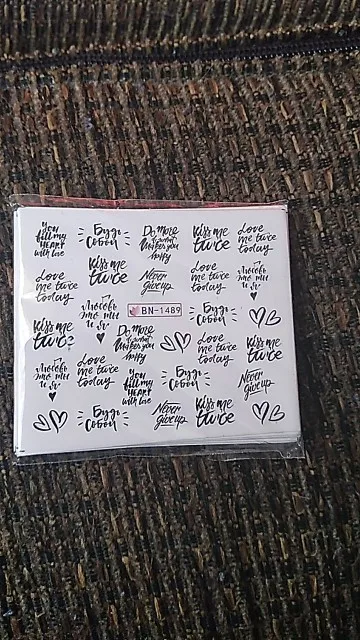 You
fill my
HEART
with love
Будь
собой
Do more
of what
makes you
happy
Kiss me
twice
Love
me twice
today
Love
me twice
today
Kiss me
twice
Never
give up
Love
me twice
today
Любовь
это ты
и я
Любовь
это ты
и я
BN-1489
Будь
собой
Kiss me
twice
Do more
of what
makes you
happy
Love
me twice
today
Любовь
это ты
и я
Love
me twice
today
You
fill my
HEART
with love
Будь
собой
Never
give up
Будь
собой
Never
give up
Kiss me
twice